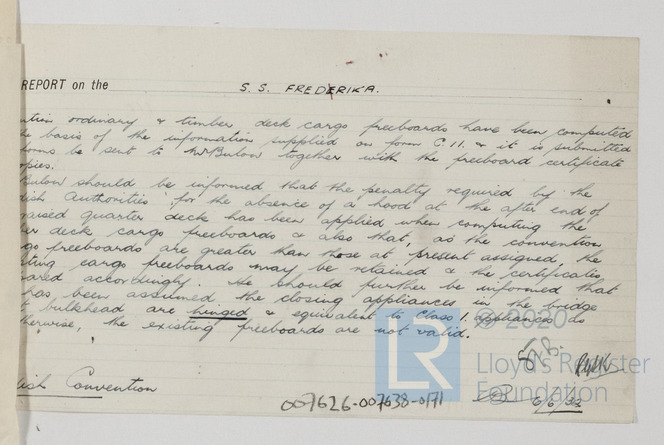 REPORT on the S. S. FREDERIKA.
ntion ordinary & timber deck cargo freeboards have been computed
he basis of the information supplied on form C.11. & it is submitted
forms be sent to Mr Bulow together with the freeboard certificate
opies.
Bulow should be informed that the penalty required by the
dish Authorities for the absence of a hood at the after end of
raised quarter deck has been applied when computing the
er deck cargo freeboards & also that, as the convention
go freeboards are greater than those at present assigned, the
sting cargo freeboards may be retained & the certificates
ared accordingly. He should further be informed that
has been assumed the closing appliances in the bridge
t bulkhead are hinged & equivalent to Class 1. appliances as
therwise, the existing freeboards are not valid.
© 2020
Lloyd's Register
Foundation
LR
dish Convention
007626-007638-0171